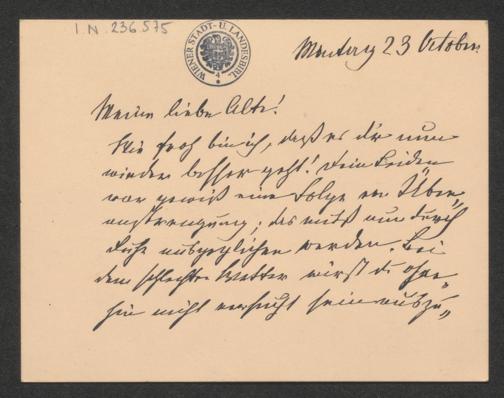 I. N. 236.575
WIENER STADT- U. LANDESBIBL.
Montag 23 October
Meine liebe Alte!
Wie froh bin ich, daß es dir nun
wieder besser geht! Dein Leiden
war gewiß eine Folge von Über-
anstrengung; das muß nun durch
Ruhe ausgeglichen werden. Bei
dem schlechten Wetter wirst du ohne-
hin nicht versucht sein auszu-